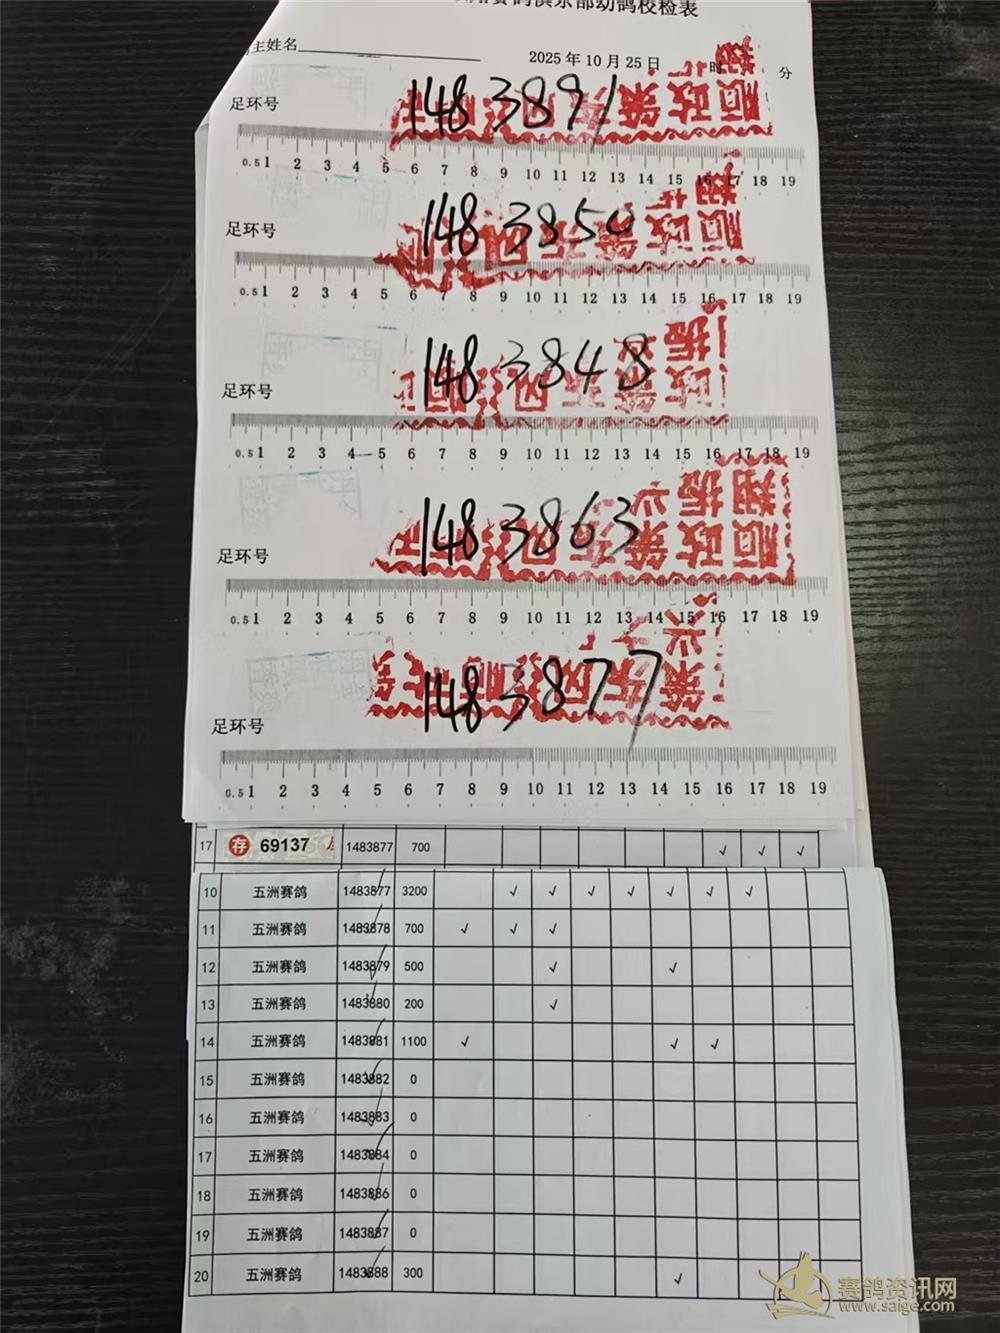 赛鸽俱乐部幼鸽校检表
主姓名
2025年10月25日 时 分
足环号 1483891
0.5 1 2 3 4 5 6 7 8 9 10 11 12 13 14 15 16 17 18 19
足环号 1483850
0.5 1 2 3 4 5 6 7 8 9 10 11 12 13 14 15 16 17 18 19
足环号 1483848
0.5 1 2 3 4 5 6 7 8 9 10 11 12 13 14 15 16 17 18 19
足环号 1483863
0.5 1 2 3 4 5 6 7 8 9 10 11 12 13 14 15 16 17 18 19
足环号 1483877
0.5 1 2 3 4 5 6 7 8 9 10 11 12 13 14 15 16 17 18 19
17 存 69137 1483877 700 √ √ √
10 五洲赛鸽 1483877 3200 √ √ √ √ √ √ √
11 五洲赛鸽 1483878 700 √ √ √
12 五洲赛鸽 1483879 500 √ √
13 五洲赛鸽 1483880 200 √
14 五洲赛鸽 1483881 1100 √ √ √
15 五洲赛鸽 1483882 0
16 五洲赛鸽 1483883 0
17 五洲赛鸽 1483884 0
18 五洲赛鸽 1483886 0
19 五洲赛鸽 1483887 0
20 五洲赛鸽 1483888 300 √
赛鸽资讯网
www.saige.com